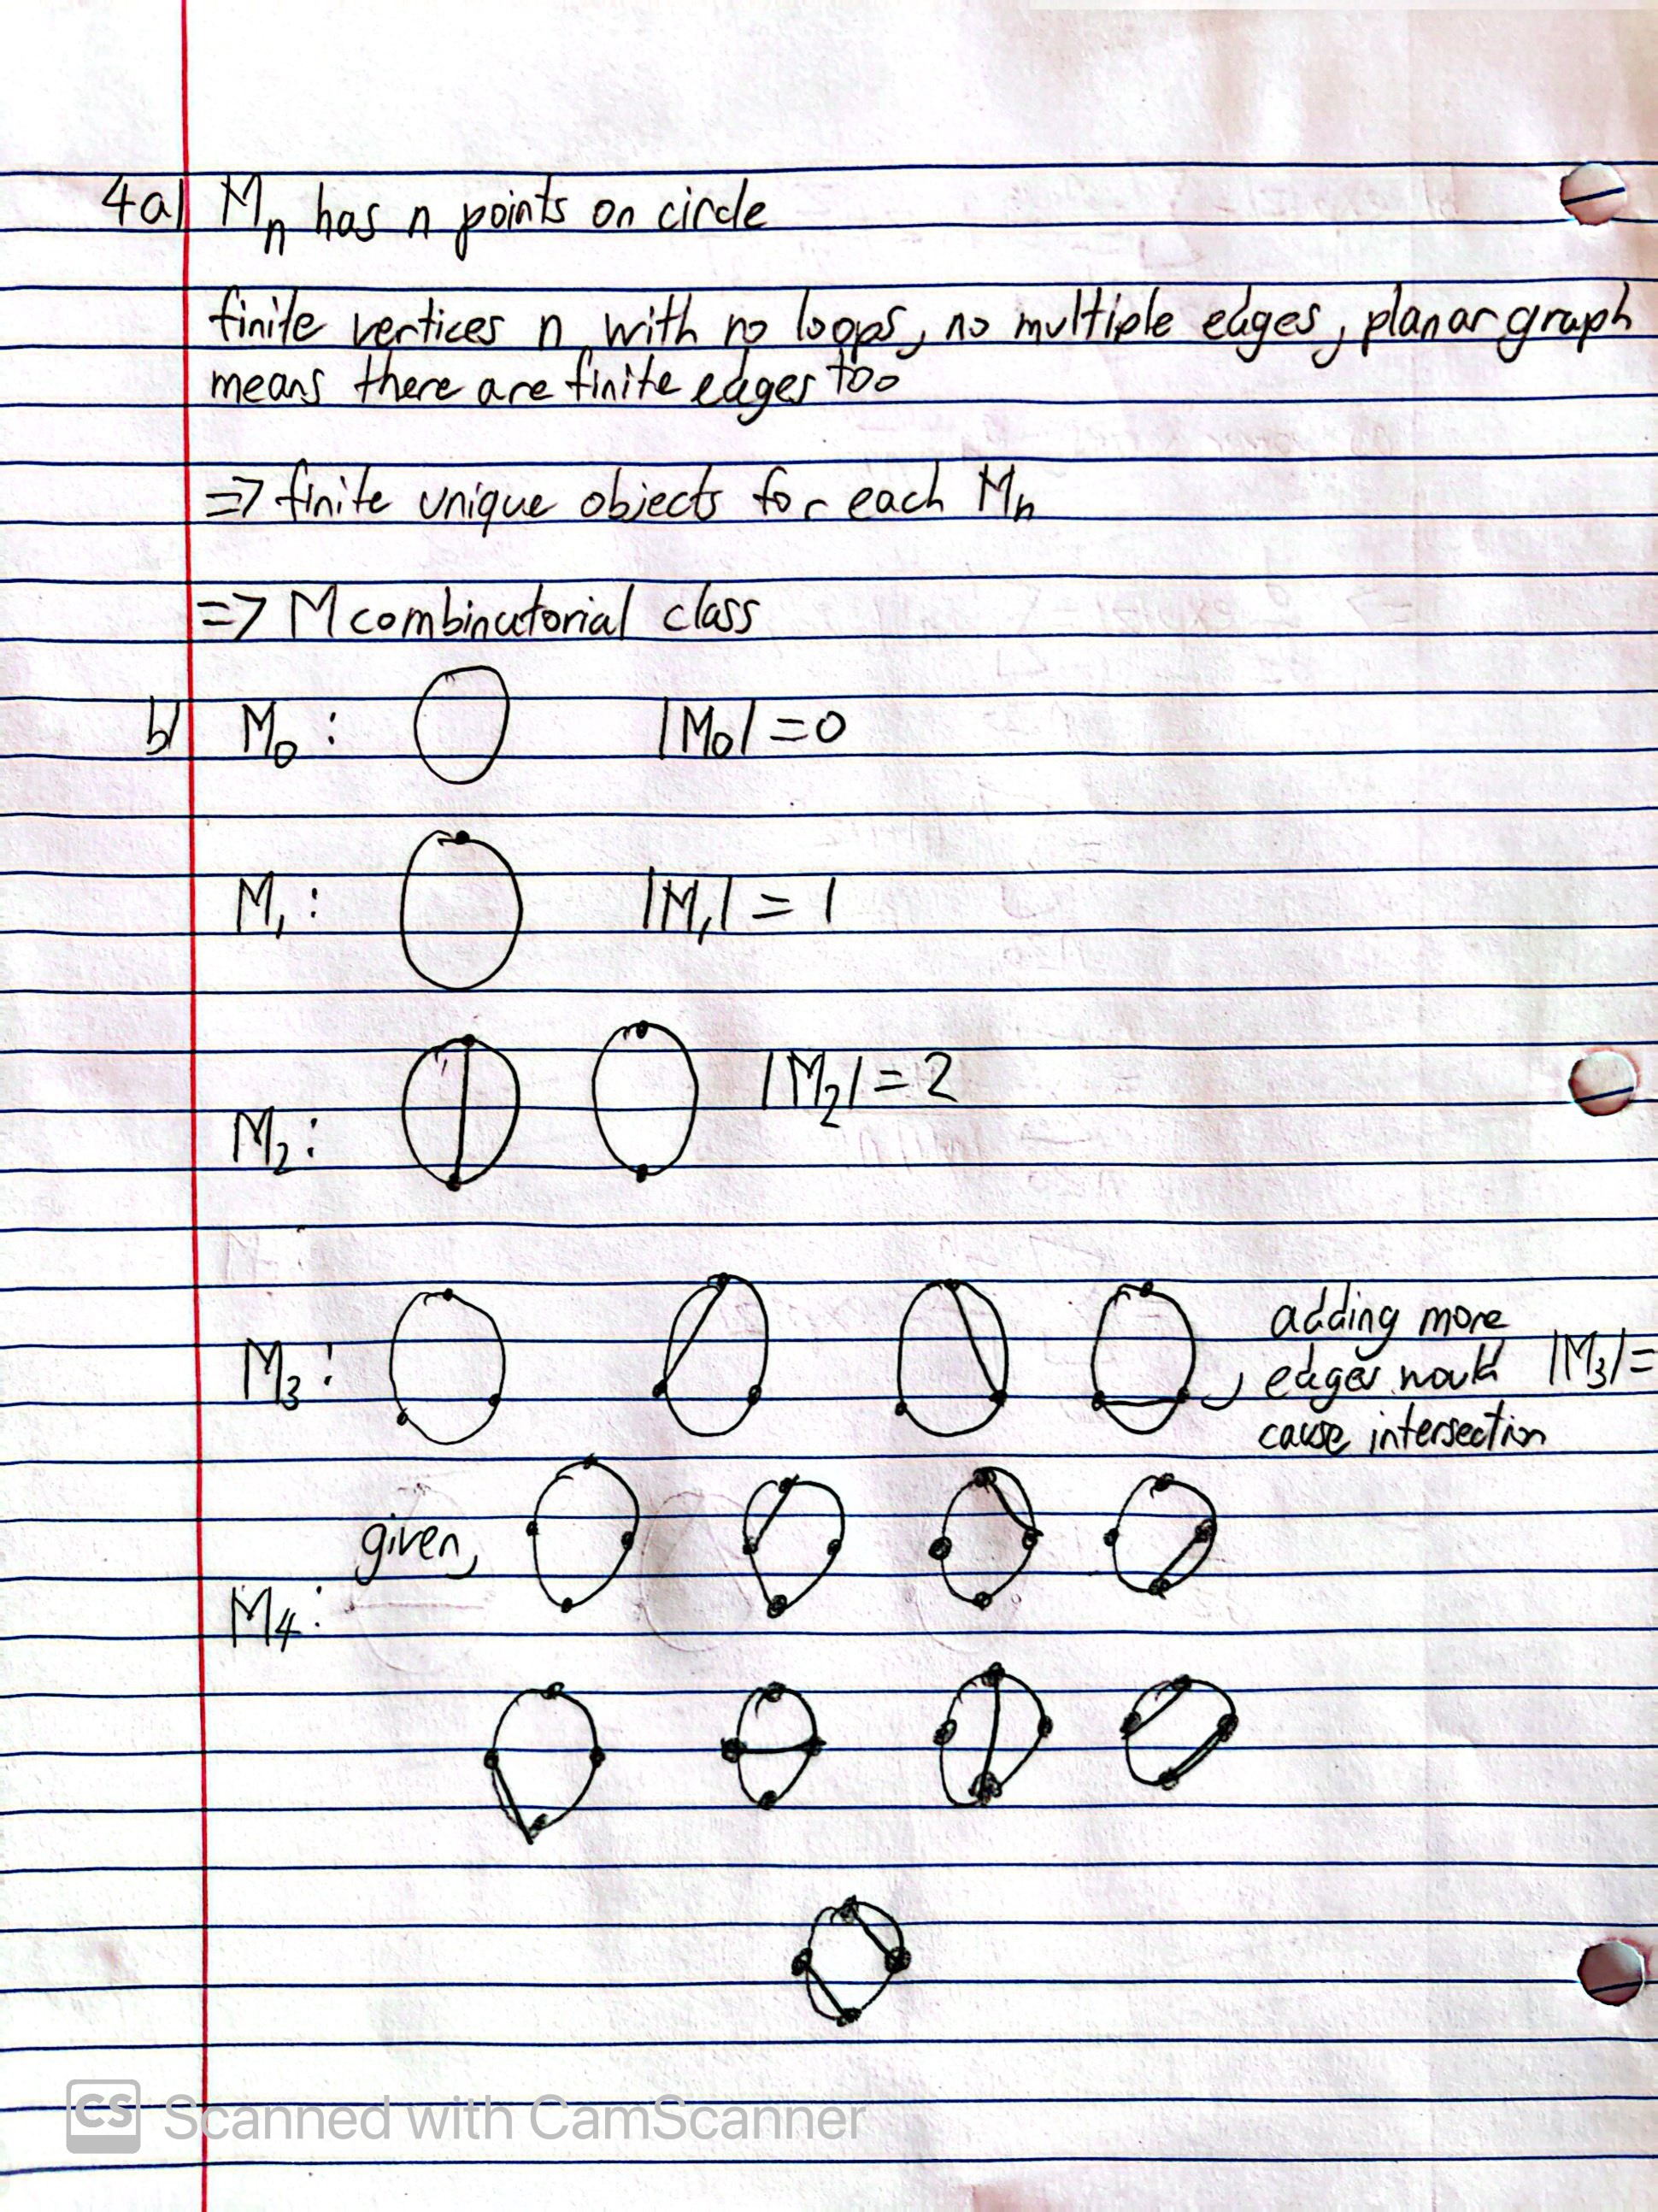 4a) Mn has n points on circle
finite vertices n with no loops, no multiple edges, planar graph
means there are finite edges too
=> finite unique objects for each Mn
=> M combinatorial class
b) M0 : |M0| = 0
M1 : |M1| = 1
M2 : |M2| = 2
M3 : , adding more edges would cause intersection |M3| =
given,
M4 :
CS Scanned with CamScanner